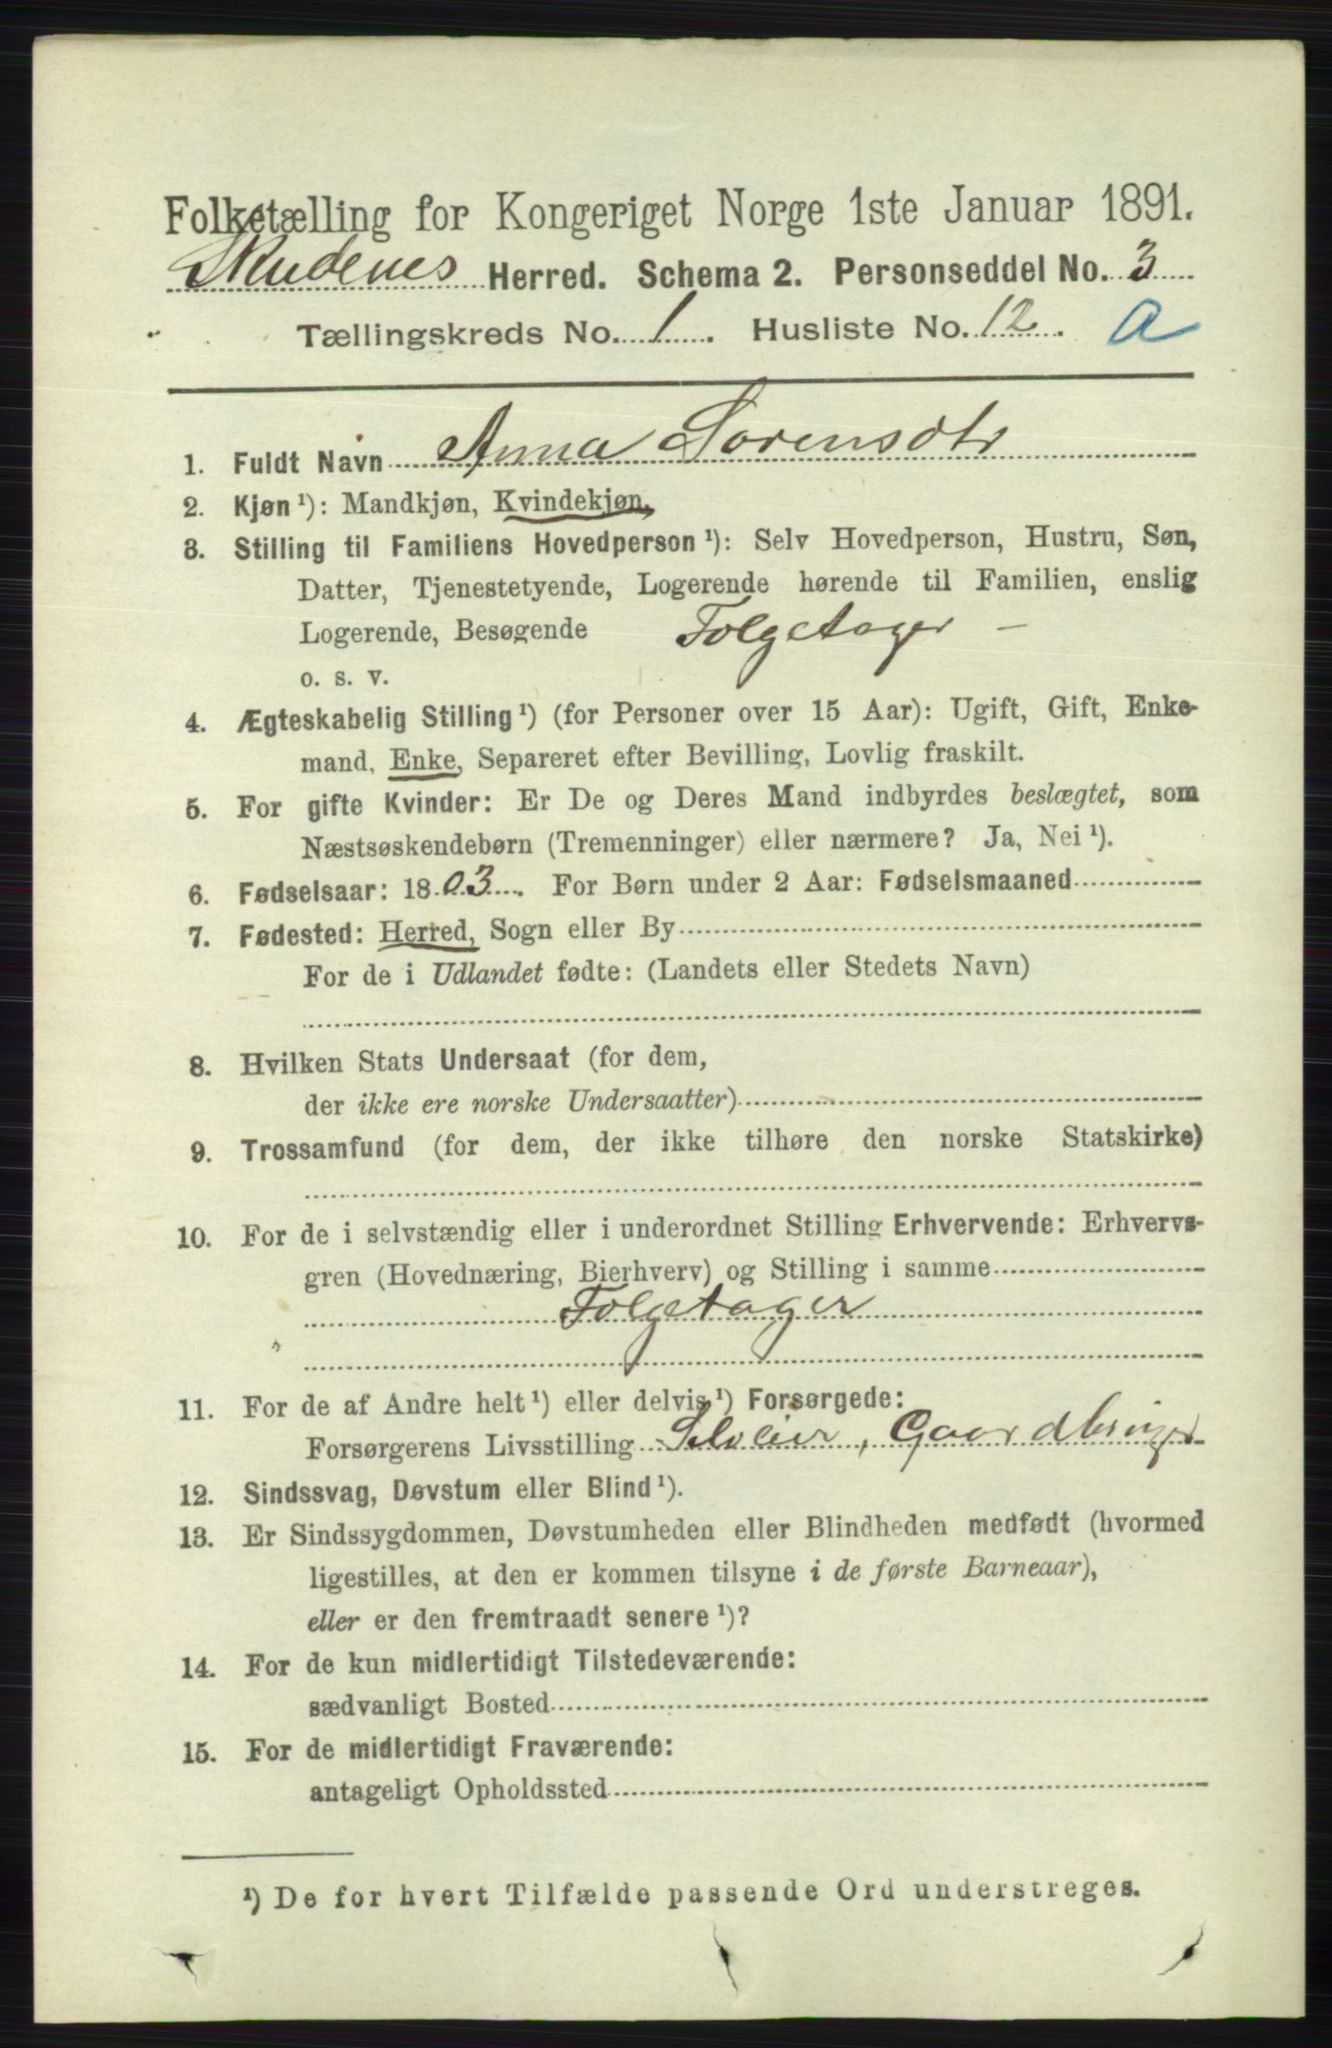 Folketælling for Kongeriget Norge 1ste Januar 1891.
Skudenes Herred. Schema 2. Personseddel No. 3
Tællingskreds No. 1. Husliste No. 12. a
1. Fuldt Navn Anna Sorensdtr
2. Kjøn ¹): Mandkjøn, Kvindekjøn.
3. Stilling til Familiens Hovedperson ¹): Selv Hovedperson, Hustru, Søn,
Datter, Tjenestetyende, Logerende hørende til Familien, enslig
Logerende, Besøgende Folgetager –
o. s. v.
4. Ægteskabelig Stilling ¹) (for Personer over 15 Aar): Ugift, Gift, Enke-
mand, Enke, Separeret efter Bevilling, Lovlig fraskilt.
5. For gifte Kvinder: Er De og Deres Mand indbyrdes beslægtet, som
Næstsøskendebørn (Tremenninger) eller nærmere? Ja, Nei ¹).
6. Fødselsaar: 1803. For Børn under 2 Aar: Fødselsmaaned
7. Fødested: Herred, Sogn eller By
For de i Udlandet fødte: (Landets eller Stedets Navn)
8. Hvilken Stats Undersaat (for dem,
der ikke ere norske Undersaatter)
9. Trossamfund (for dem, der ikke tilhøre den norske Statskirke)
10. For de i selvstændig eller i underordnet Stilling Erhvervende: Erhvervs-
gren (Hovednæring, Bierhverv) og Stilling i samme
Folgetager
11. For de af Andre helt ¹) eller delvis ¹) Forsørgede:
Forsørgerens Livsstilling Selveier, Gaardbruger
12. Sindssvag, Døvstum eller Blind ¹).
13. Er Sindssygdommen, Døvstumheden eller Blindheden medfødt (hvormed
ligestilles, at den er kommen tilsyne i de første Barneaar),
eller er den fremtraadt senere ¹)?
14. For de kun midlertidigt Tilstedeværende:
sædvanligt Bosted
15. For de midlertidigt Fraværende:
antageligt Opholdssted
¹) De for hvert Tilfælde passende Ord understreges.